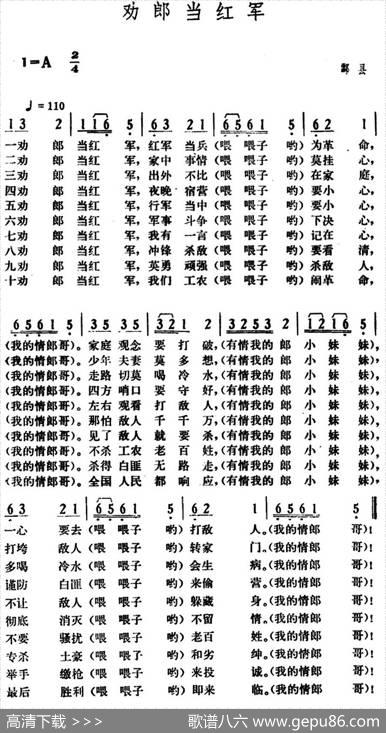 劝郎当红军
1=A 2/4
酃县
♩=110
13 2 116 5 35 21 6561 5 62 1
一劝 郎 当红 军，红军 当兵(喂 喂子 哟)为革 命，
二劝 郎 当红 军，家中 事情(喂 喂子 哟)莫挂 心，
三劝 郎 当红 军，出外 不比(喂 喂子 哟)在家 庭，
四劝 郎 当红 军，夜晚 宿营(喂 喂子 哟)要小 心，
五劝 郎 当红 军，行军 当中(喂 喂子 哟)要小 心，
六劝 郎 当红 军，军事 斗争(喂 喂子 哟)下决 心，
七劝 郎 当红 军，我有 一言(喂 喂子 哟)记在 心，
八劝 郎 当红 军，冲锋 杀敌(喂 喂子 哟)要看 清，
九劝 郎 当红 军，英勇 顽强(喂 喂子 哟)杀敌 人，
十劝 郎 当红 军，我们 工农(喂 喂子 哟)闹革 命，
6561 5 35 35 321 2 3253 2 1216 5
(我的情郎哥)。家庭 观念 要 打 破，(有情我的 郎 小 妹 妹)，
(我的情郎哥)。少年 夫妻 莫 多 想，(有情我的 郎 小 妹 妹)，
(我的情郎哥)。走路 切莫 喝 冷 水，(有情我的 郎 小 妹 妹)，
(我的情郎哥)。四方 哨口 要 守 好，(有情我的 郎 小 妹 妹)，
(我的情郎哥)。左右 观看 打 敌 人，(有情我的 郎 小 妹 妹)，
(我的情郎哥)。那怕 敌人 千 千 万，(有情我的 郎 小 妹 妹)，
(我的情郎哥)。见了 敌人 就 要 杀，(有情我的 郎 小 妹 妹)，
(我的情郎哥)。不杀 工农 老 百 姓，(有情我的 郎 小 妹 妹)，
(我的情郎哥)。杀得 白匪 无 路 走，(有情我的 郎 小 妹 妹)，
(我的情郎哥)。全国 人民 都 响 应，(有情我的 郎 小 妹 妹)，
63 21 6561 5 62 1 6561 5
一心 要去(喂 喂子 哟)打敌 人。(我的情郎 哥)！
打垮 敌人(喂 喂子 哟)转家 门。(我的情郎 哥)！
多喝 冷水(喂 喂子 哟)会生 病。(我的情郎 哥)！
谨防 白匪(喂 喂子 哟)来偷 营。(我的情郎 哥)！
不让 敌人(喂 喂子 哟)躲藏 身。(我的情郎 哥)！
彻底 消灭(喂 喂子 哟)不留 情。(我的情郎 哥)！
不要 骚扰(喂 喂子 哟)老百 姓。(我的情郎 哥)！
专杀 土豪(喂 喂子 哟)和劣 绅。(我的情郎 哥)！
举手 缴枪(喂 喂子 哟)来投 诚。(我的情郎 哥)！
最后 胜利(喂 喂子 哟)即来 临。(我的情郎 哥)！
高清下载 >>>> 歌谱八六 www.gepu86.com